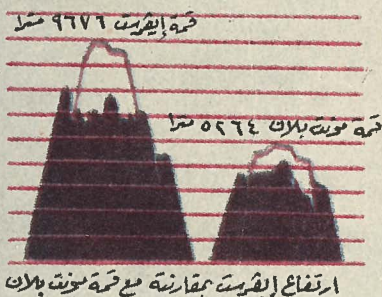 قمة إيفرست ٩٦٧٦ مترا
قمة مونت بلان ٥٢٦٤ مترا
ارتفاع إيفرست بمقارنتة مع قمة مونت بلان